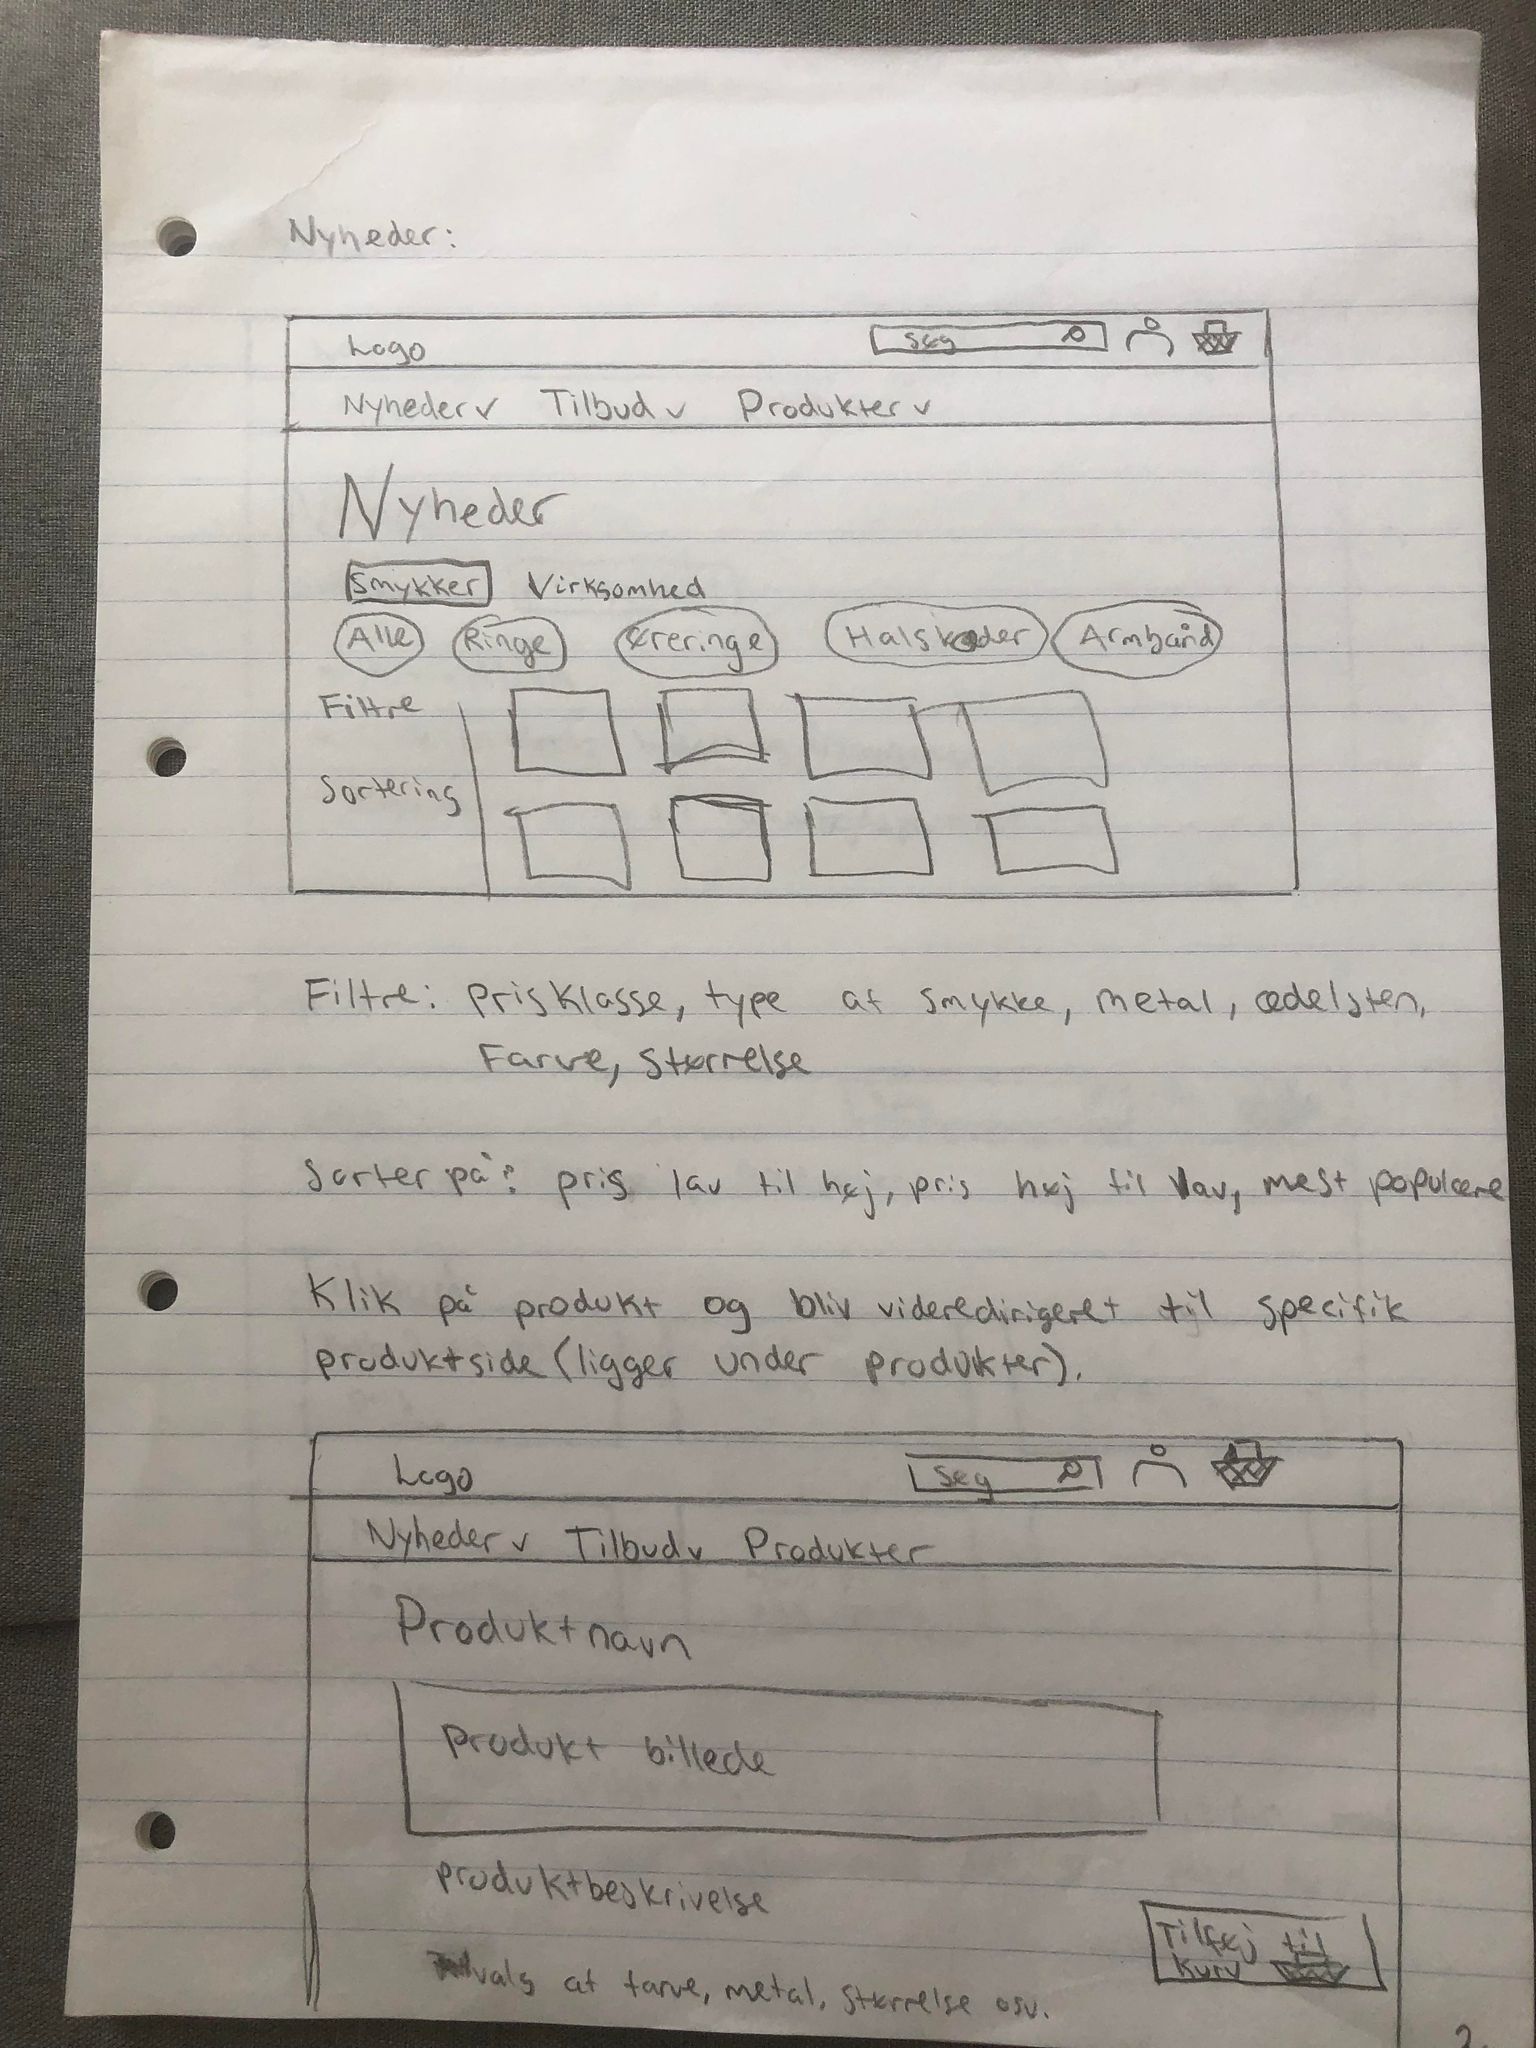 Nyheder:
Logo Søg
Nyheder v Tilbud v Produkter v
Nyheder
Smykker Virksomhed
Alle Ringe Øreringe Halskæder Armbånd
Filtre
Sortering
Filtre: prisklasse, type af smykke, metal, ædelsten,
Farve, størrelse
Sorter på: pris lav til høj, pris høj til lav, mest populære
Klik på produkt og bliv videredirigeret til specifik
produktside (ligger under produkter).
Logo Søg
Nyheder v Tilbud v Produkter
Produktnavn
Produkt billede
produktbeskrivelse
Tilføj til
kurv
valg af farve, metal, størrelse osv.
2.